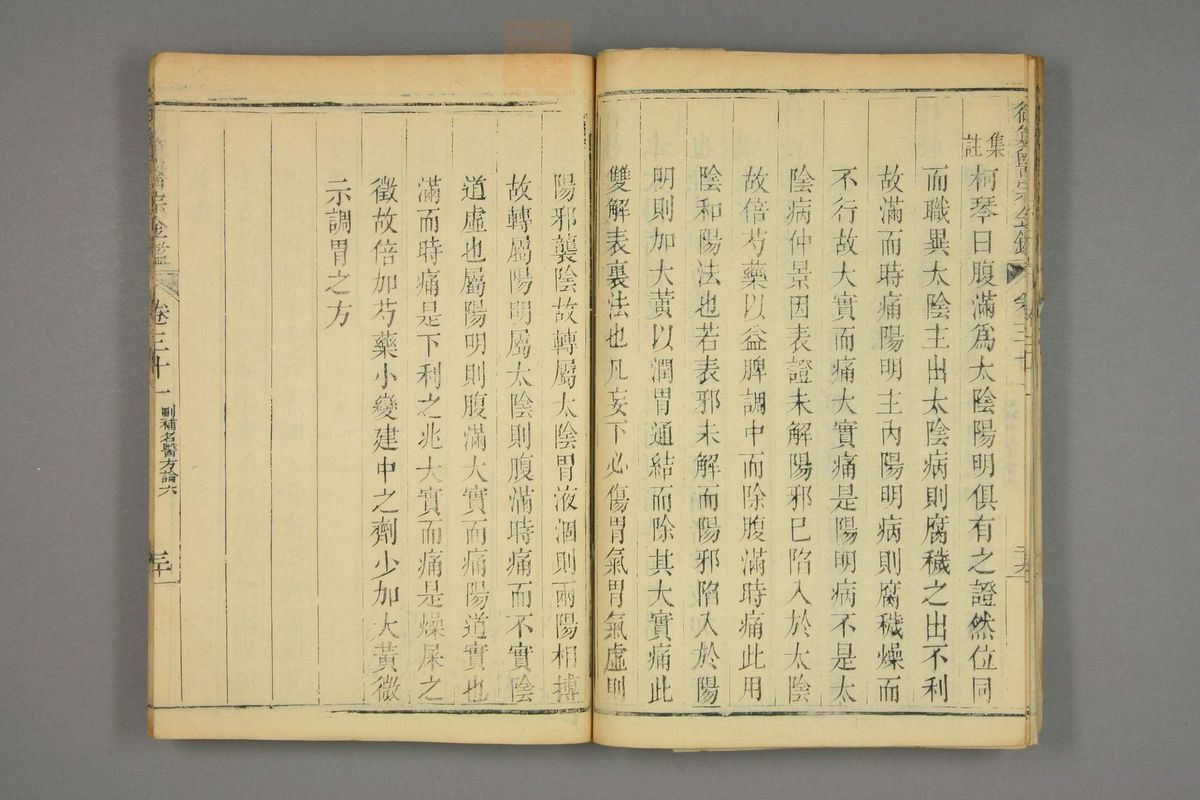 集註
柯琴曰腹滿爲太陰陽明俱有之證然位同
而職異太陰主出太陰病則腐穢之出不利
故滿而時痛陽明主內陽明病則腐穢燥而
不行故大實而痛大實痛是陽明病不是太
陰病仲景因表證未解陽邪已陷入於太陰
故倍芍藥以益脾調中而除腹滿時痛此用
陰和陽法也若表邪未解而陽邪陷入於陽
明則加大黃以潤胃通結而除其大實痛此
雙解表裏法也凡妄下必傷胃氣胃氣虛則
陽邪襲陰故轉屬太陰胃液涸則兩陽相搏
故轉屬陽明屬太陰則腹滿時痛而不實陰
道虛也屬陽明則腹滿大實而痛陽道實也
滿而時痛是下利之兆大實而痛是燥屎之
徵故倍加芍藥小變建中之劑少加大黃微
示調胃之方
醫宗金鑑
卷三十一
刪補名醫方論六
三十